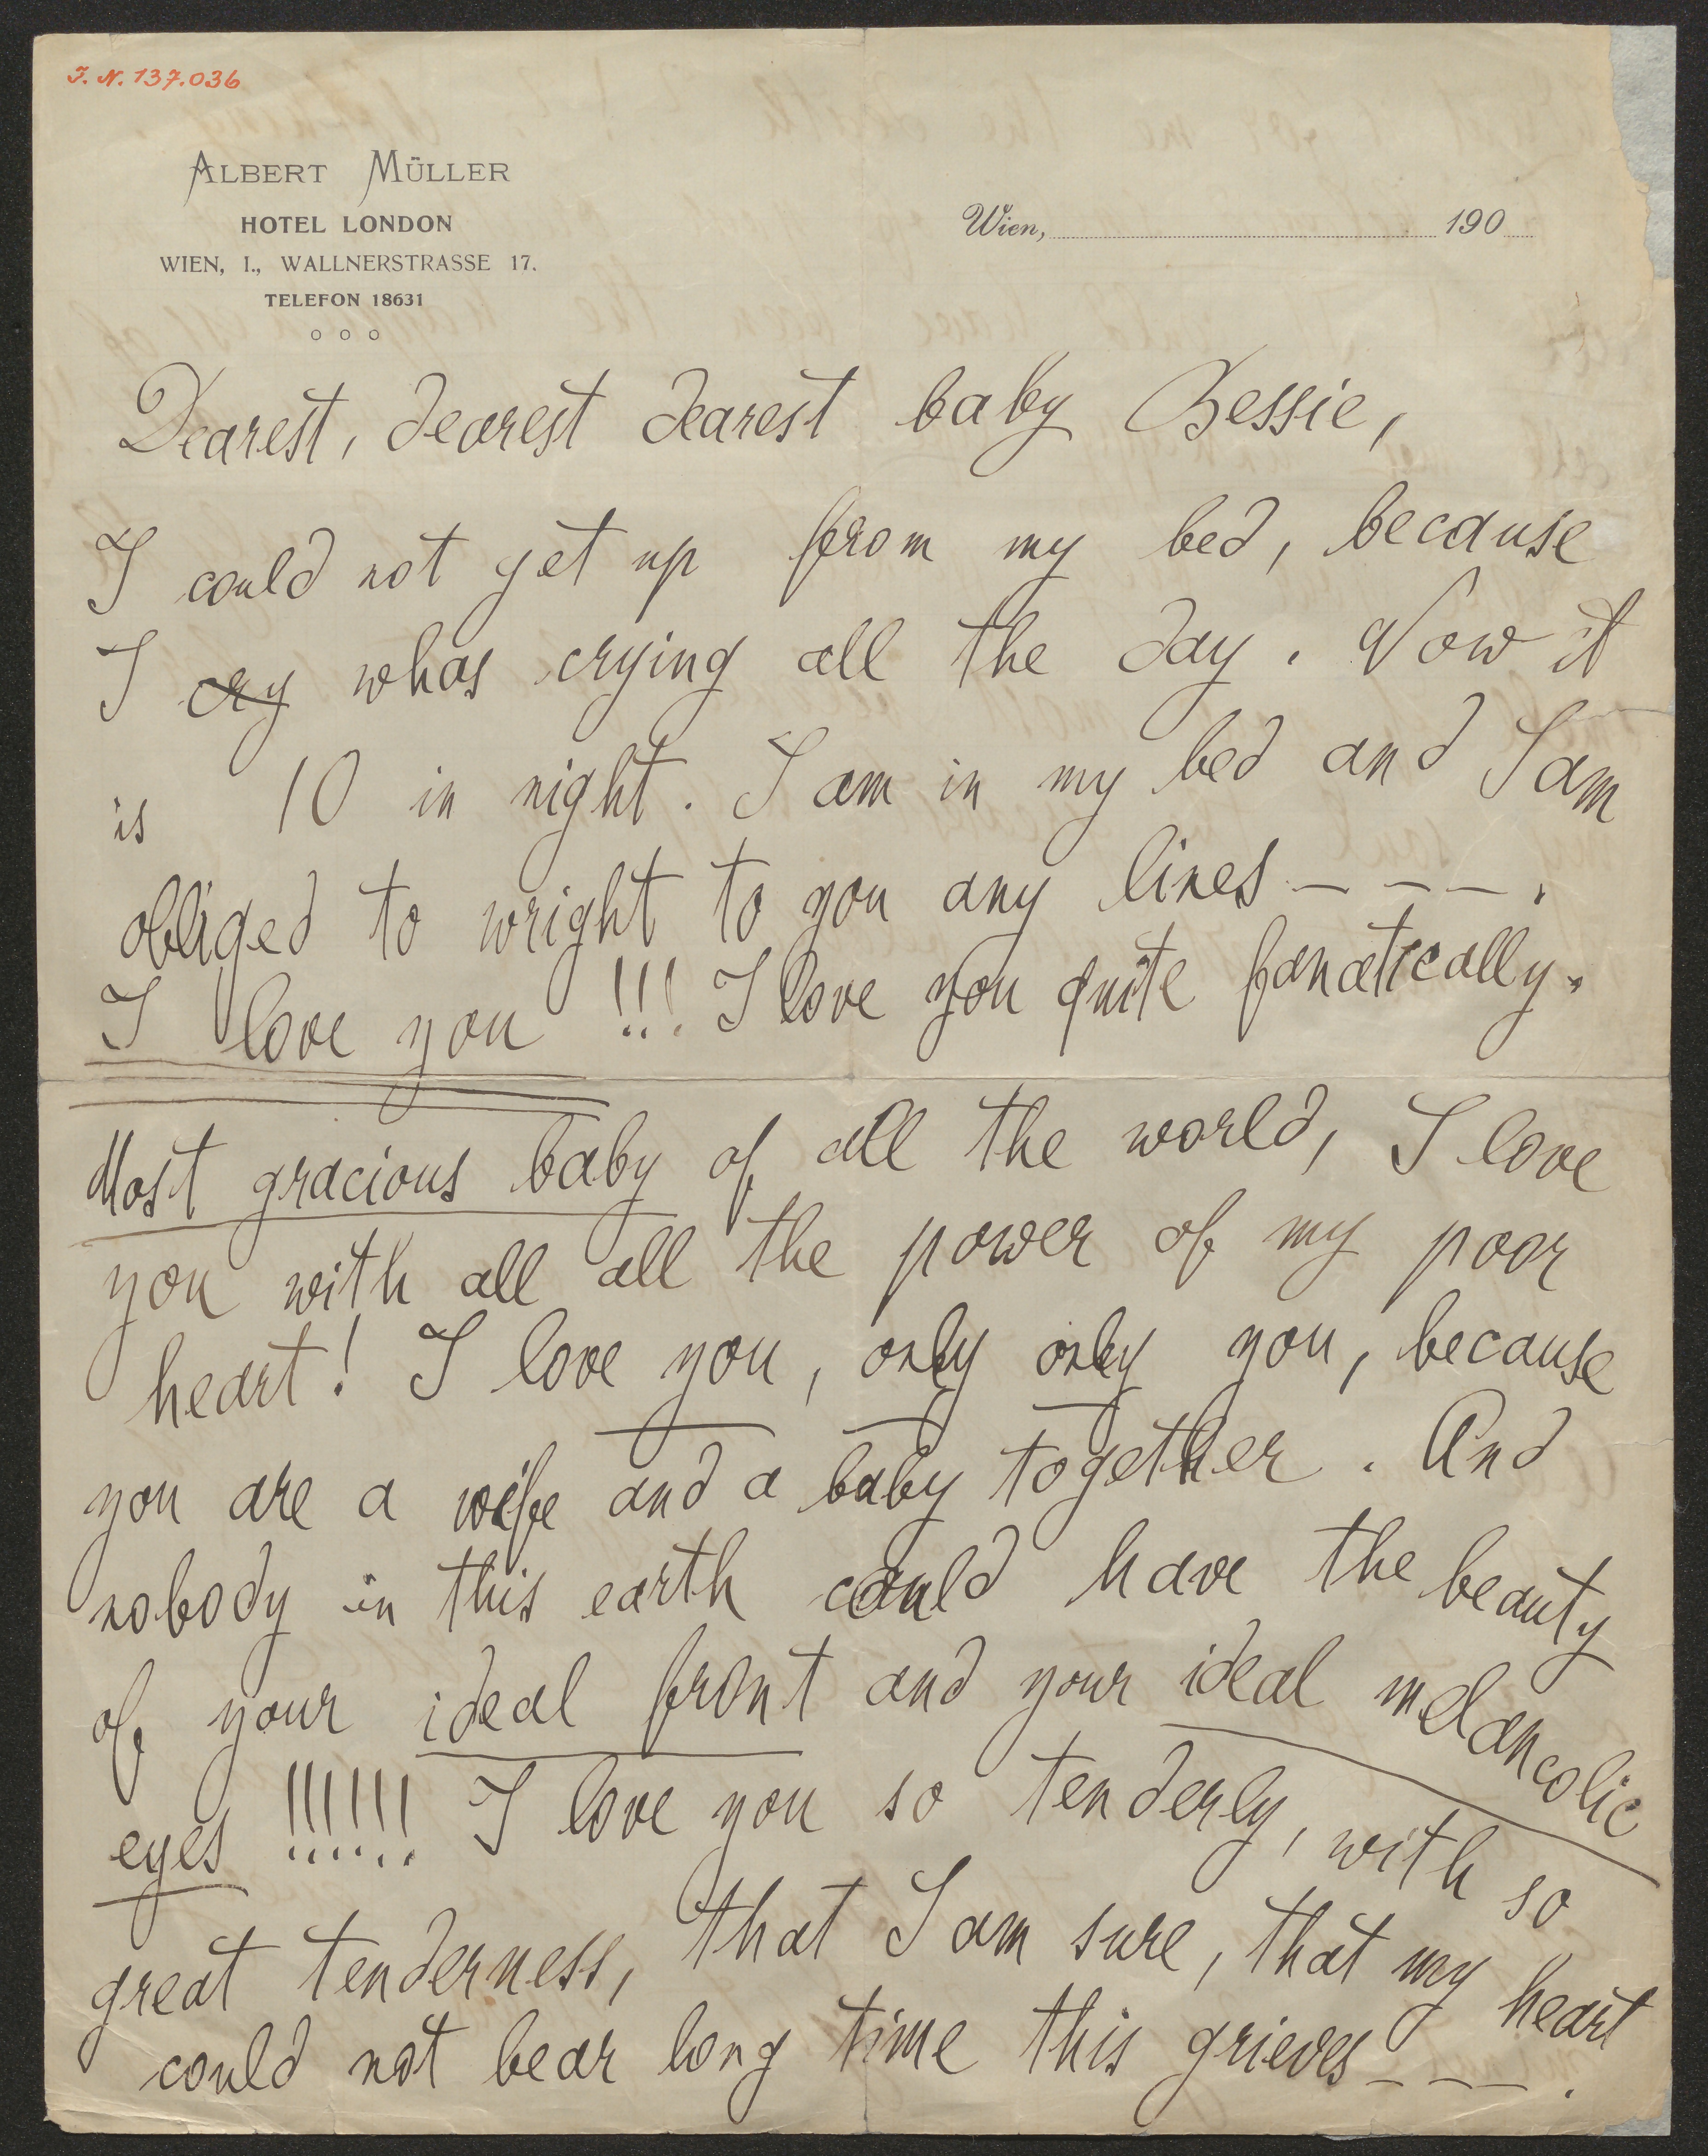 I. N. 137.036
ALBERT MÜLLER
HOTEL LONDON
WIEN, I., WALLNERSTRASSE 17.
TELEFON 18631
Wien, 190
Dearest, dearest dearest baby Bessie,
I could not get up from my bed, because
I cry whas crying all the day. Now it
is 10 in night. I am in my bed and I am
obliged to wright to you any lines - - - .
I love you !!! I love you quite fanatically.
Most gracious baby of all the world, I love
you with all all the power of my poor
heart! I love you, only only you, because
you are a wife and a baby together. And
nobody in this earth could have the beauty
of your ideal front and your ideal melancolic
eyes !!!!!! I love you so tenderly, with so
great tenderness, that I am sure, that my heart
could not bear long time this grieves - - - .